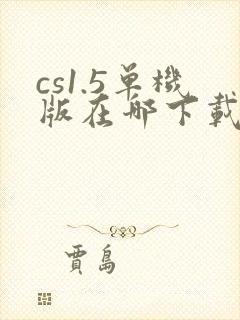 cs1.5单機
版在哪下載
賈島